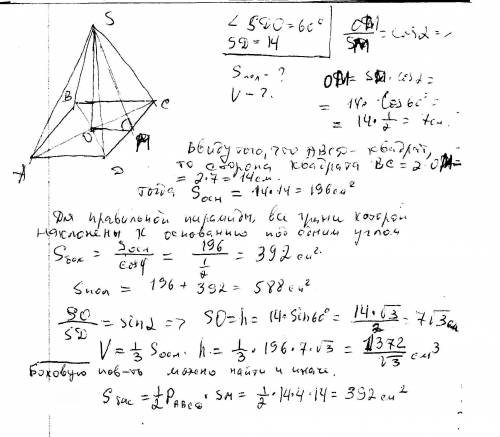 S
B
C
O
M
A
D
∠ SDO = 60°
SD = 14
OM/SM = cos α =>
Sпол - ?
V - ?
OM = SM · cos α =
= 14 · cos 60° =
= 14 · 1/2 = 7см.
Ввиду того, что ABCD - квадрат,
то сторона квадрата BC = 2·OM =
= 2·7 = 14см.
тогда Sосн = 14·14 = 196см²
Для правильной пирамиды, все грани которой
наклонены к основанию под одним углом
Sбок = Sосн/cosφ = 196/(1/2) = 392 см².
Sпол = 196 + 392 = 588 см²
SO/SD = sin α => SO = h = 14·sin 60° = 14·√3/2 = 7√3 см
V = 1/3 Sосн. h = 1/3 · 196 · 7 · √3 = 1372/√3 см³
Боковую пов-ть можно найти и иначе.
Sбок = 1/2 PABCD · SM = 1/2 · 14·4·14 = 392 см²